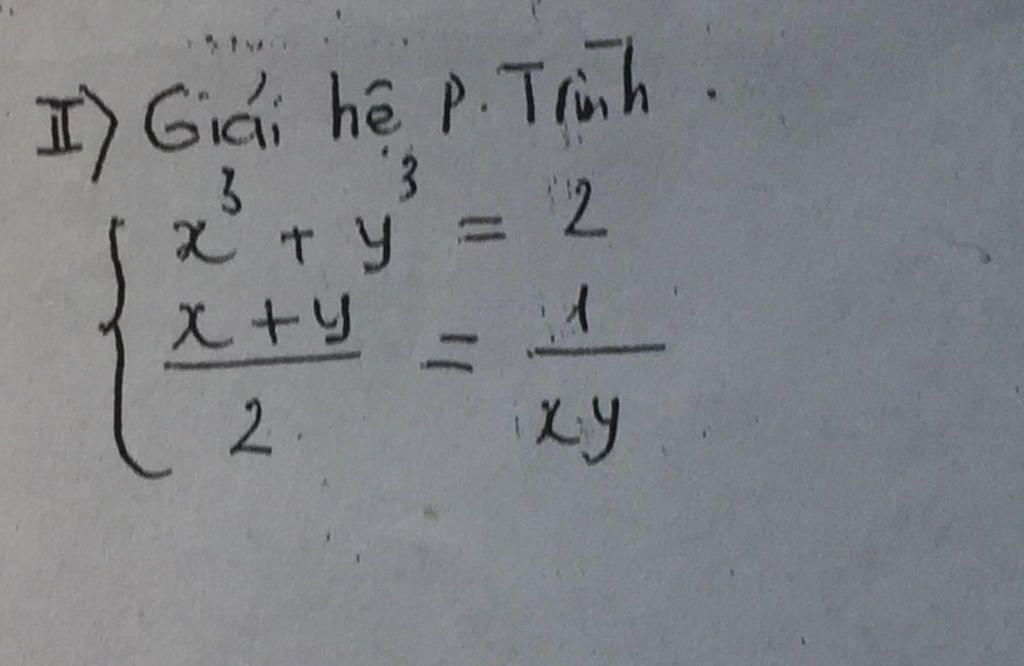 II) Giải hệ P. Trình.
x³ + y³ = 2
x + y / 2 = 1 / x.y